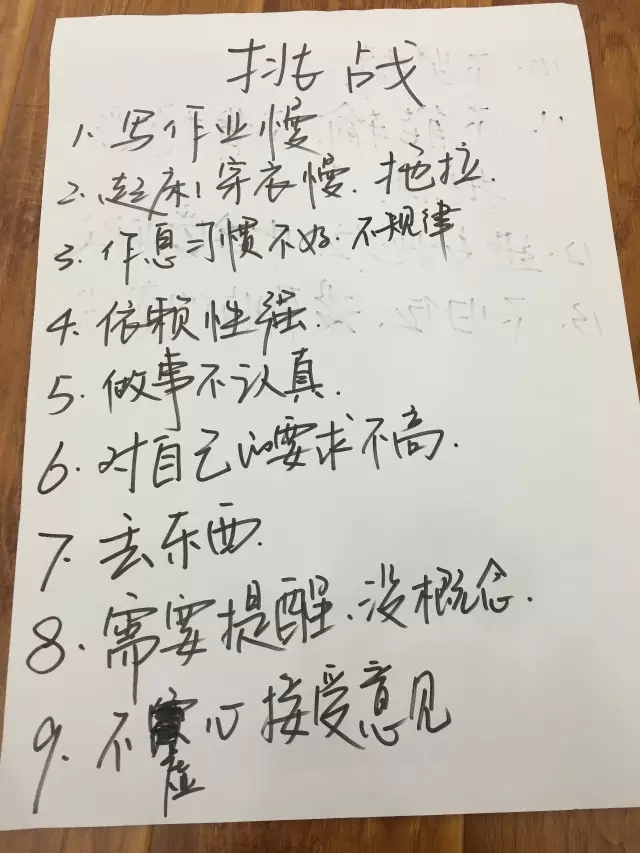 挑战
1. 写作业慢
2. 起床！穿衣慢. 拖拉.
3. 作息习惯不好. 不规律
4. 依赖性强.
5. 做事不认真.
6. 对自己的要求不高.
7. 丢东西.
8. 需要提醒、没概念.
9. 不虚心接受意见